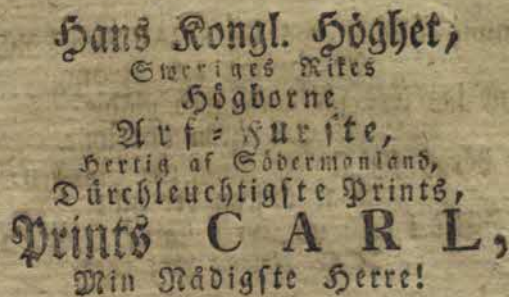 Hans Kongl. Höghet,
Sweriges Rikes
Högborne
Arf-Furste,
Hertig af Södermanland,
Dürchleuchtigste Prints,
Prints CARL,
Min Nådigste Herre!